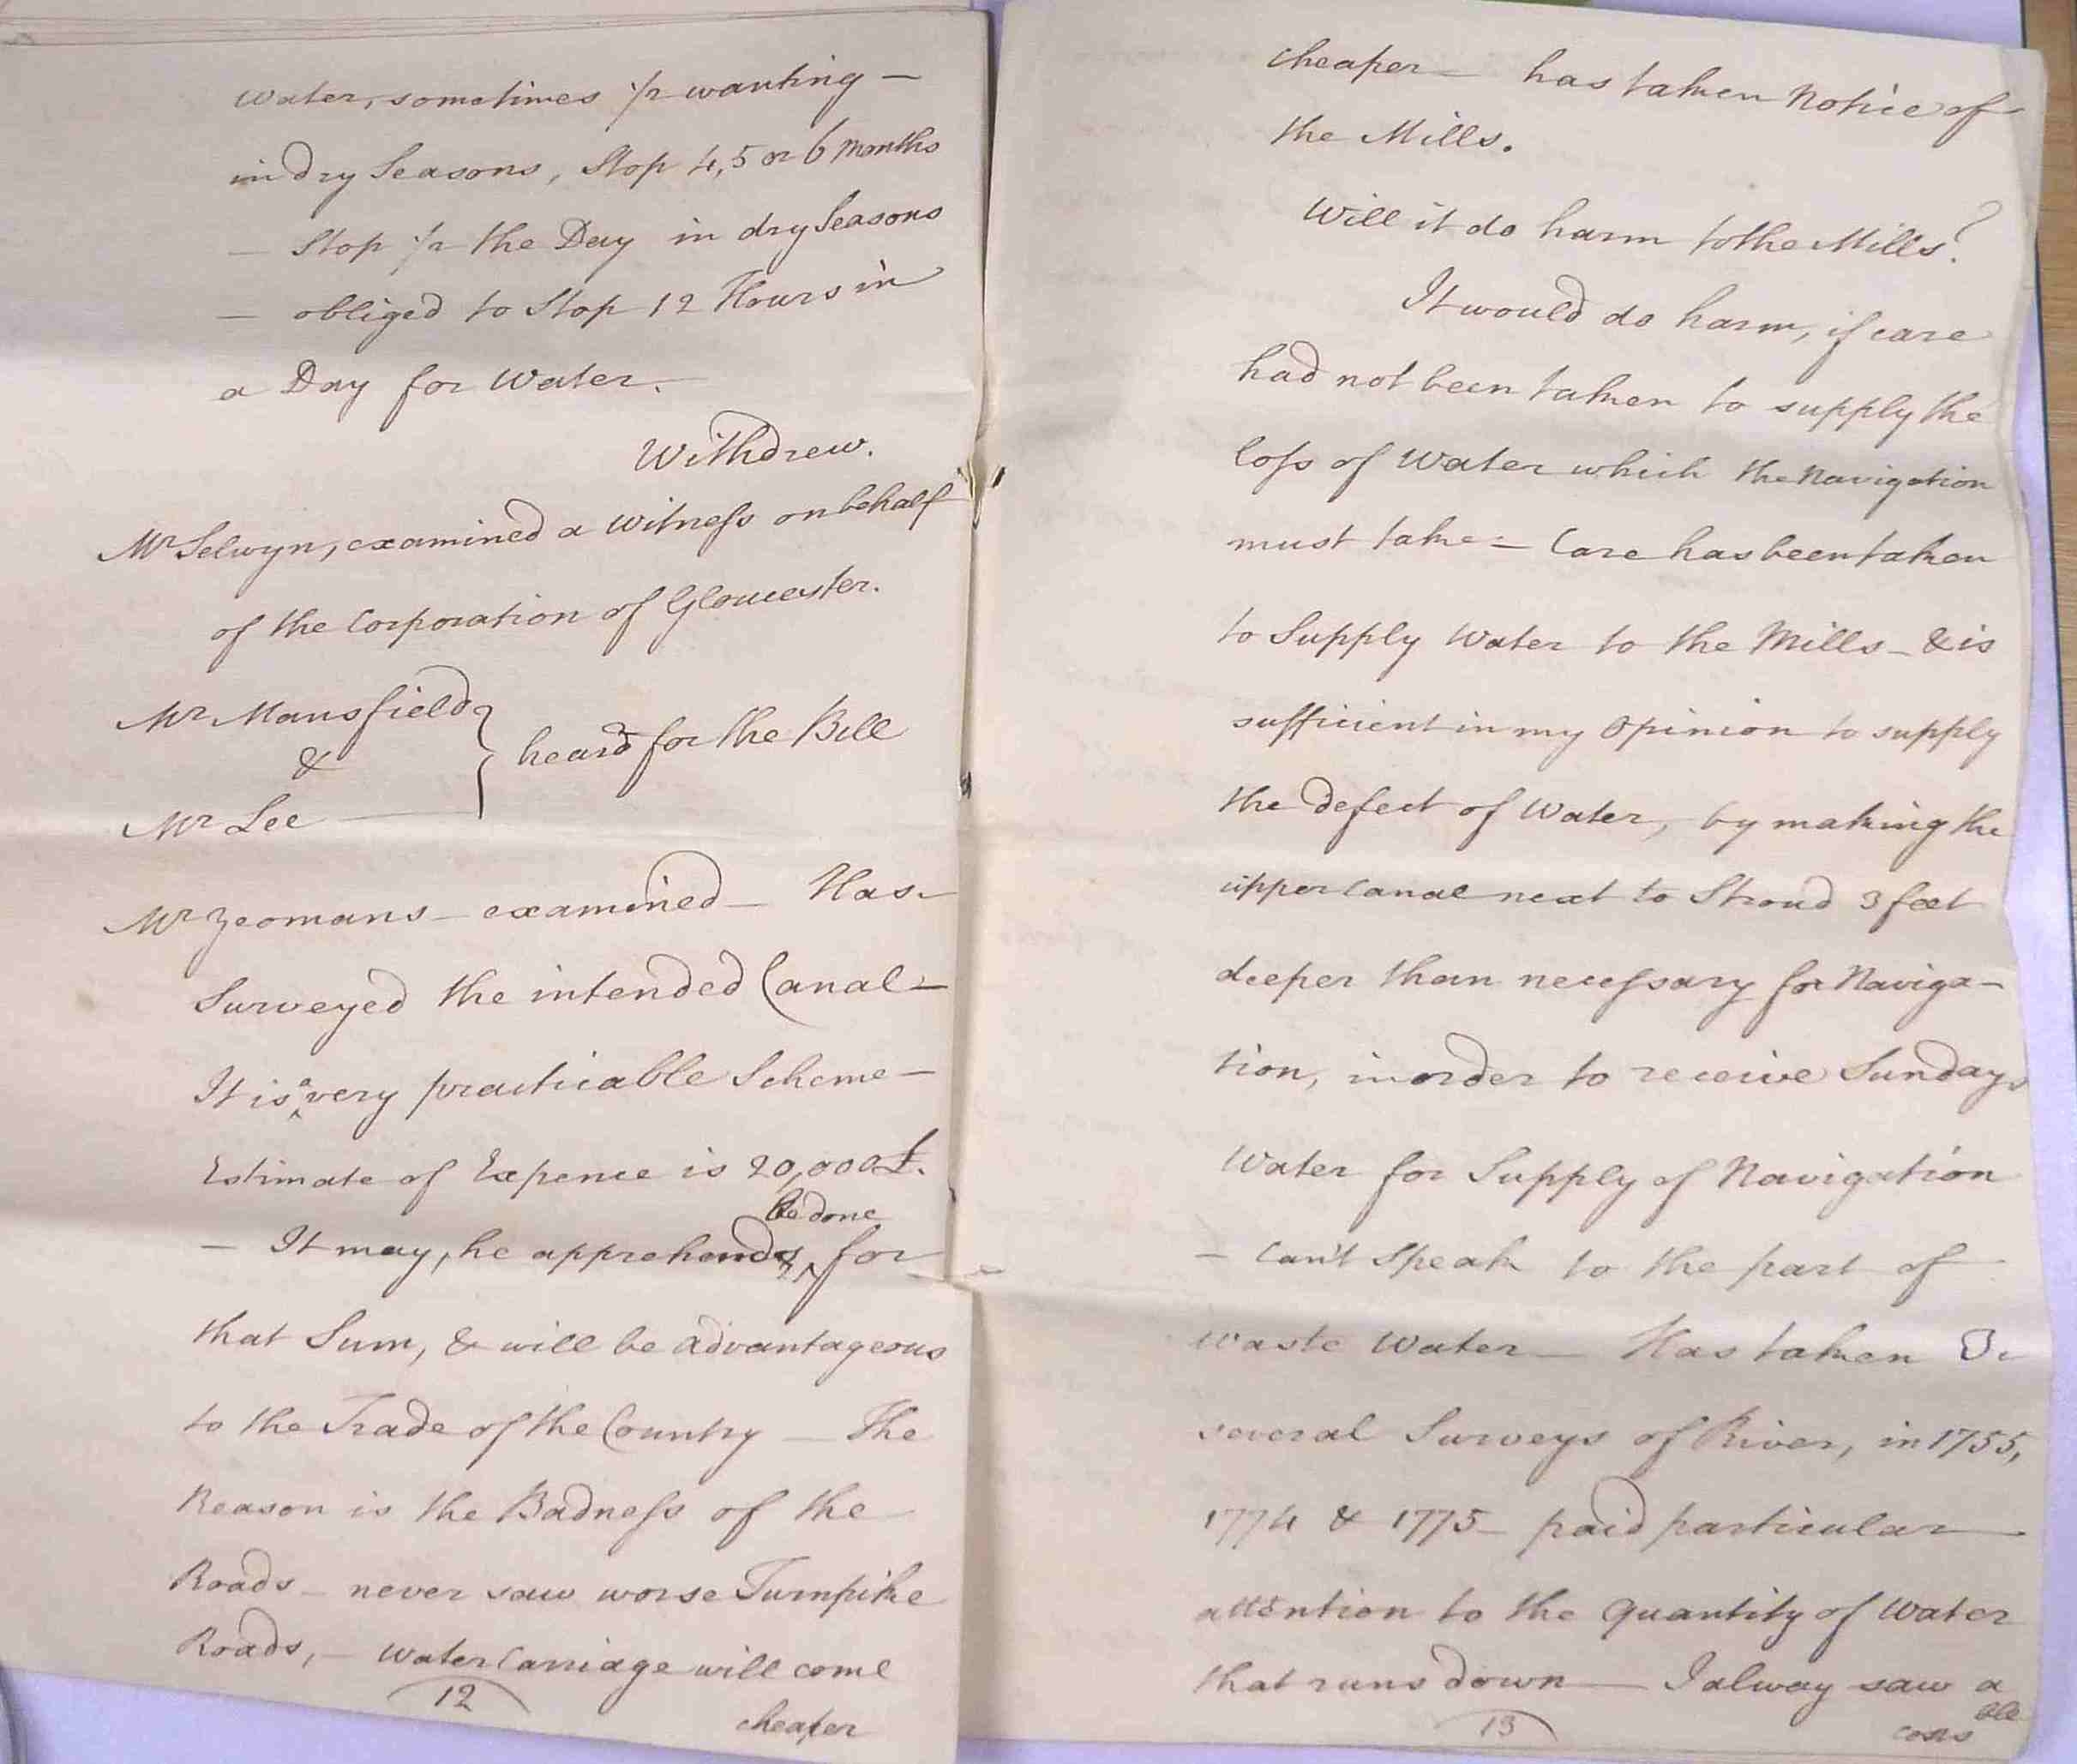 water, sometimes 1/2 wanting —
in dry Seasons, Stop 4, 5 or 6 Months
— Stop 1/2 the Day in dry Seasons
— obliged to Stop 12 Hours in
a Day for Water.
Withdrew.
Mr Selwyn, examined a Witneſs on behalf
of the Corporation of Gloucester.
Mr Mansfield
&
heard for the Bill
Mr Lee
Mr Yeomans — examined — Has
Surveyed the intended Canal —
It is a very practicable Scheme —
Estimate of Expence is 20,000£.
be done
— It may, he apprehends, for
that Sum, & will be advantageous
to the Trade of the Country — The
Reason is the Badneſs of the
Roads — never saw worse Turnpike
Roads, — Water Carriage will come
12
cheaper
cheaper — has taken Notice of
the Mills.
Will it do harm to the Mills?
It would do harm, if care
had not been taken to supply the
loſs of Water which the Navigation
must take — Care has been taken
to Supply Water to the Mills — & is
sufficient in my Opinion to supply
the defect of Water, by making the
upper Canal next to Stroud 3 feet
deeper than neceſsary for Naviga-
tion, in order to receive Sundays
Water for Supply of Navigation
— Can't Speak to the part of
waste Water — Has taken
several Surveys of River, in 1755,
1774 & 1775 — paid particular
attention to the Quantity of Water
that runs down — I alway saw a
13